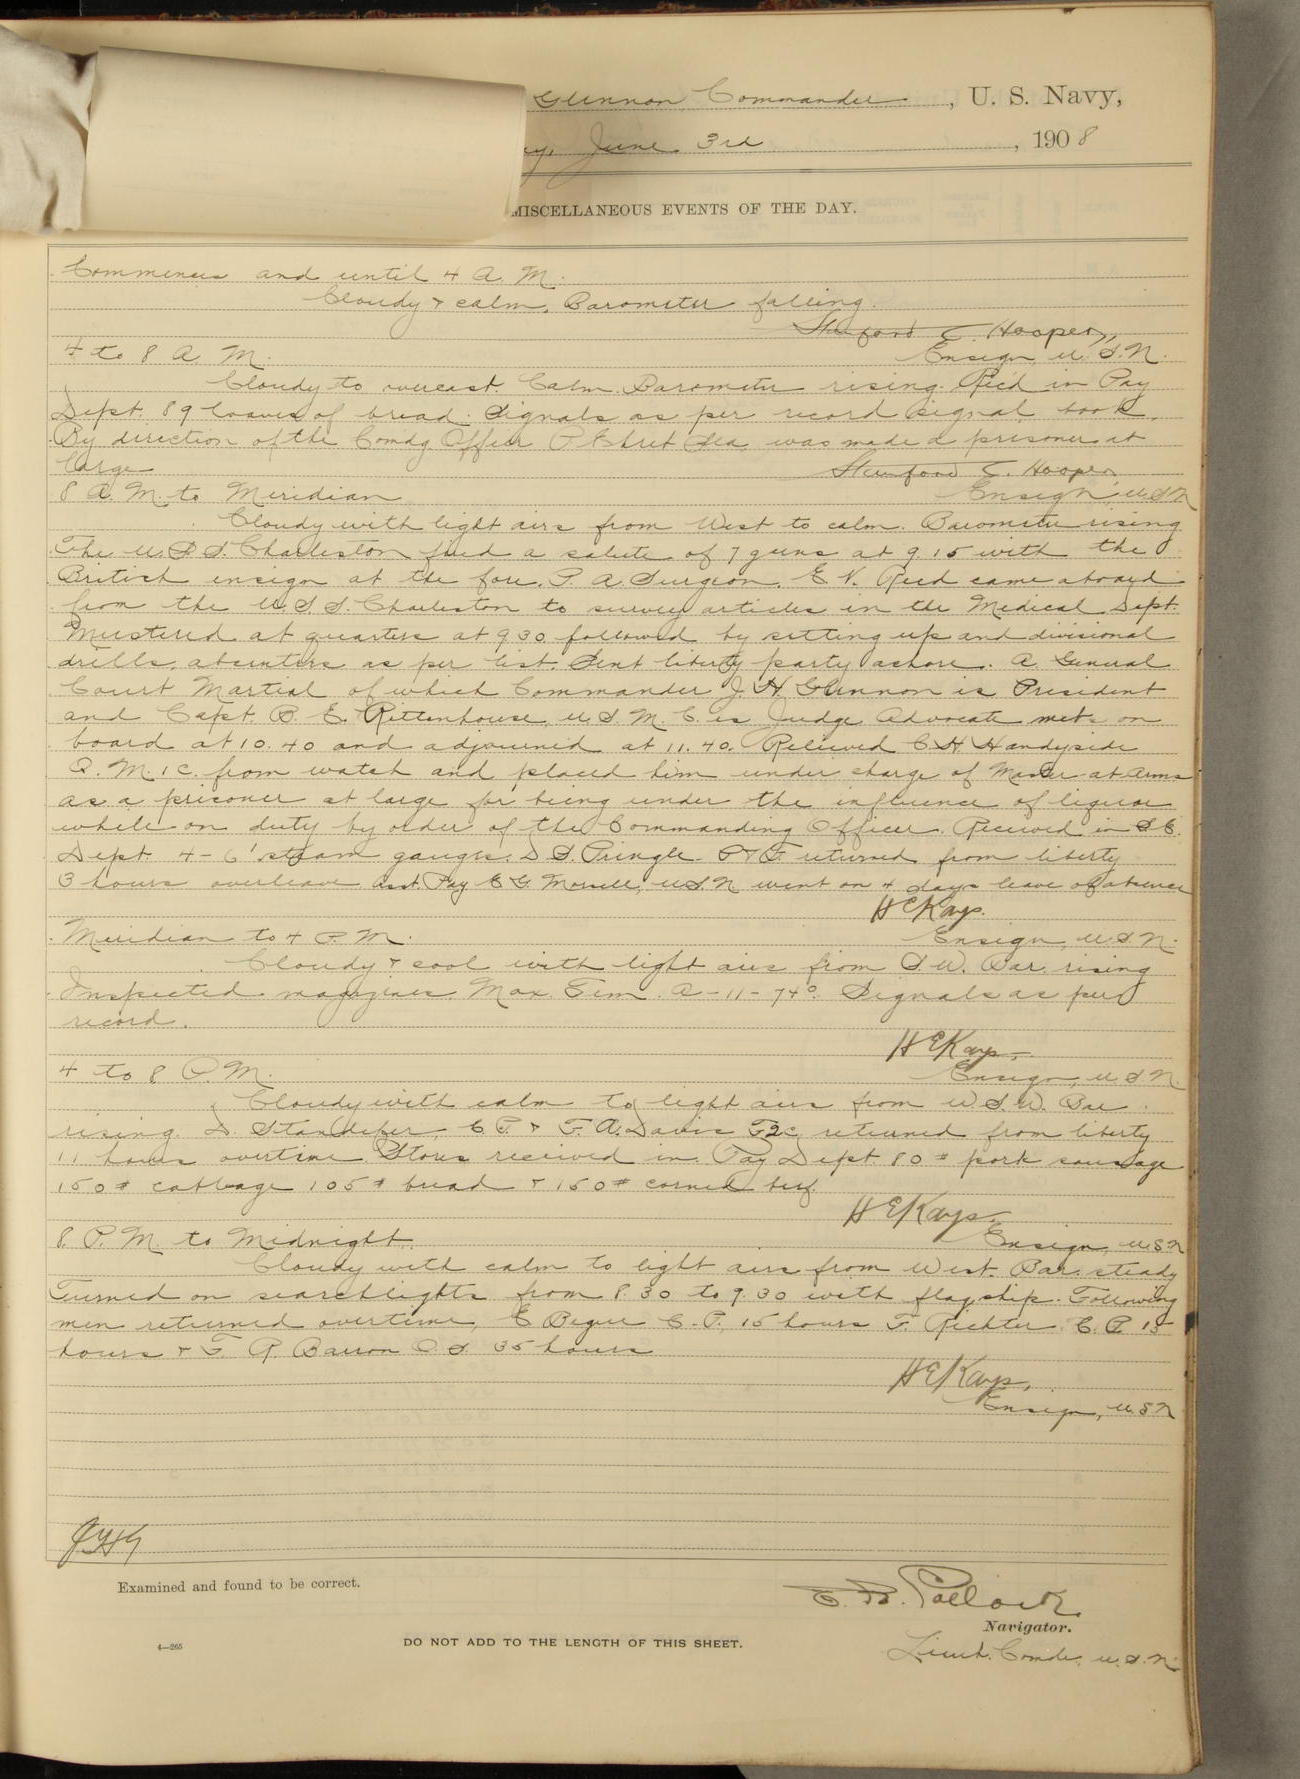 Glennon, Commander, U. S. Navy,
ay, June 3rd, 1908
MISCELLANEOUS EVENTS OF THE DAY.
Commences and until 4 A. M.
Cloudy & calm, Barometer falling.
Stanford C. Hooper,
4 to 8 A. M. Ensign U.S.N.
Cloudy to overcast. Calm. Barometer rising. Rec'd in Pay
Dept. 89 loaves of bread. Signals as per record signal book.
By direction of the Comdg Officer was made a prisoner at
large Stanford C. Hooper,
8 A. M. to Meridian Ensign, U.S.N
Cloudy with light airs from West to calm. Barometer rising
The U.S.S. Charleston fired a salute of 7 guns at 9.15 with the
British ensign at the fore. P. A. Surgeon, E. V. Reed came aboard
from the U.S.S. Charleston to survey articles in the Medical Dept.
Mustered at quarters at 9 30 followed by setting up and divisional
drills, absentees as per list. Sent liberty party ashore. A General
Court Martial of which Commander J. H. Glennon is President
and Capt. B. E. Rittenhouse, U.S.M.C. is Judge Advocate met on
board at 10.40 and adjourned at 11.40. Relieved C H Handyside
Q.M.1C. from watch and placed him under charge of Master-at-Arms
as a prisoner at large for being under the influence of liquor
while on duty by order of the Commanding Officer. Received in S.E.
Dept. 4-6" steam gauges. D S. Pringle returned from liberty
3 hours overleave Asst. Pay E G. Morsell, U.S.N went on 4 days leave of absence
H E Kays.
Meridian to 4 P. M. Ensign, U.S.N.
Cloudy & cool with light airs from S.W. Bar. rising
Inspected magazines. Max. Tem. A-11-74°. Signals as per
record.
H E Kays,
4 to 8 P. M. Ensign, U.S.N.
Cloudy with calm to light airs from W.S.W. Bar.
rising. D. Standefer, C.P. & F. A. Davis F2c returned from liberty
11 hours overtime. Stores received in Pay Dept 80# pork sausage
150# cabbage 105# bread & 150# corned beef.
H E Kays.
8. P. M. to Midnight. Ensign, U.S.N
Cloudy with calm to light airs from West. Bar. steady
Turned on searchlights from 8.30 to 9.30 with flagship. Following
men returned overtime, E C.P., 15 hours F. Richter C.P. 15
hours & F R. Barron O.S. 35 hours
H E Kays,
Ensign, U.S.N
JHG
Examined and found to be correct.
E. B. Pollock
Navigator.
4—265
DO NOT ADD TO THE LENGTH OF THIS SHEET.
Lieut. Comdr. U.S.N.